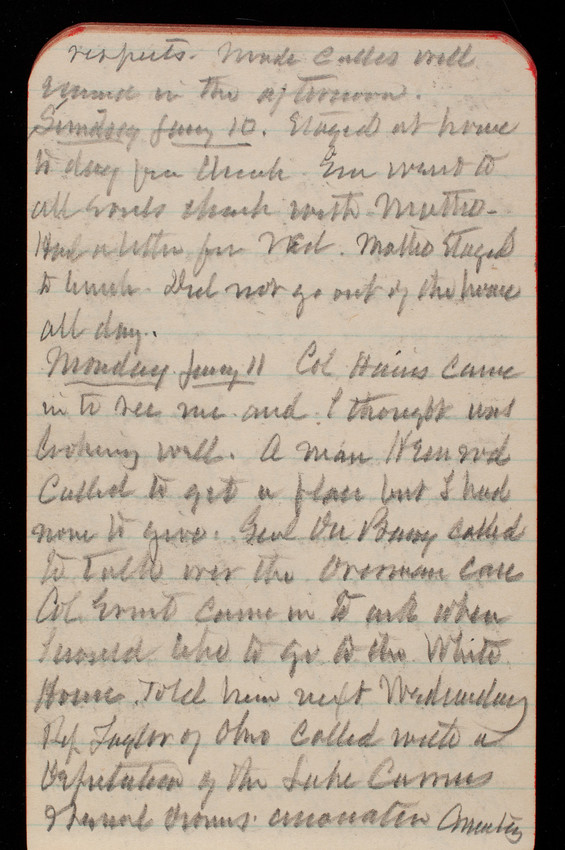 respects. Made calles with
in the afternoon.
Sunday Jany 10. Staged at home
to day from Church. Em went to
all Souls church with Mattie.
Had a letter from Ned. Mattie Staged
to lunch. Did not go out of the house
all day.
Monday Jany 11 Col Hains came
in to see me and I thought was
looking well. A man
Called to get a place but I had
none to give. Genl Du Barry called
to talk over the Overman case
Col. Ernst came in to ask when
I would like to go to the White
House. Told him next Wednesday
Rep Taylor of Ohio called with a
Deputation of the Lake